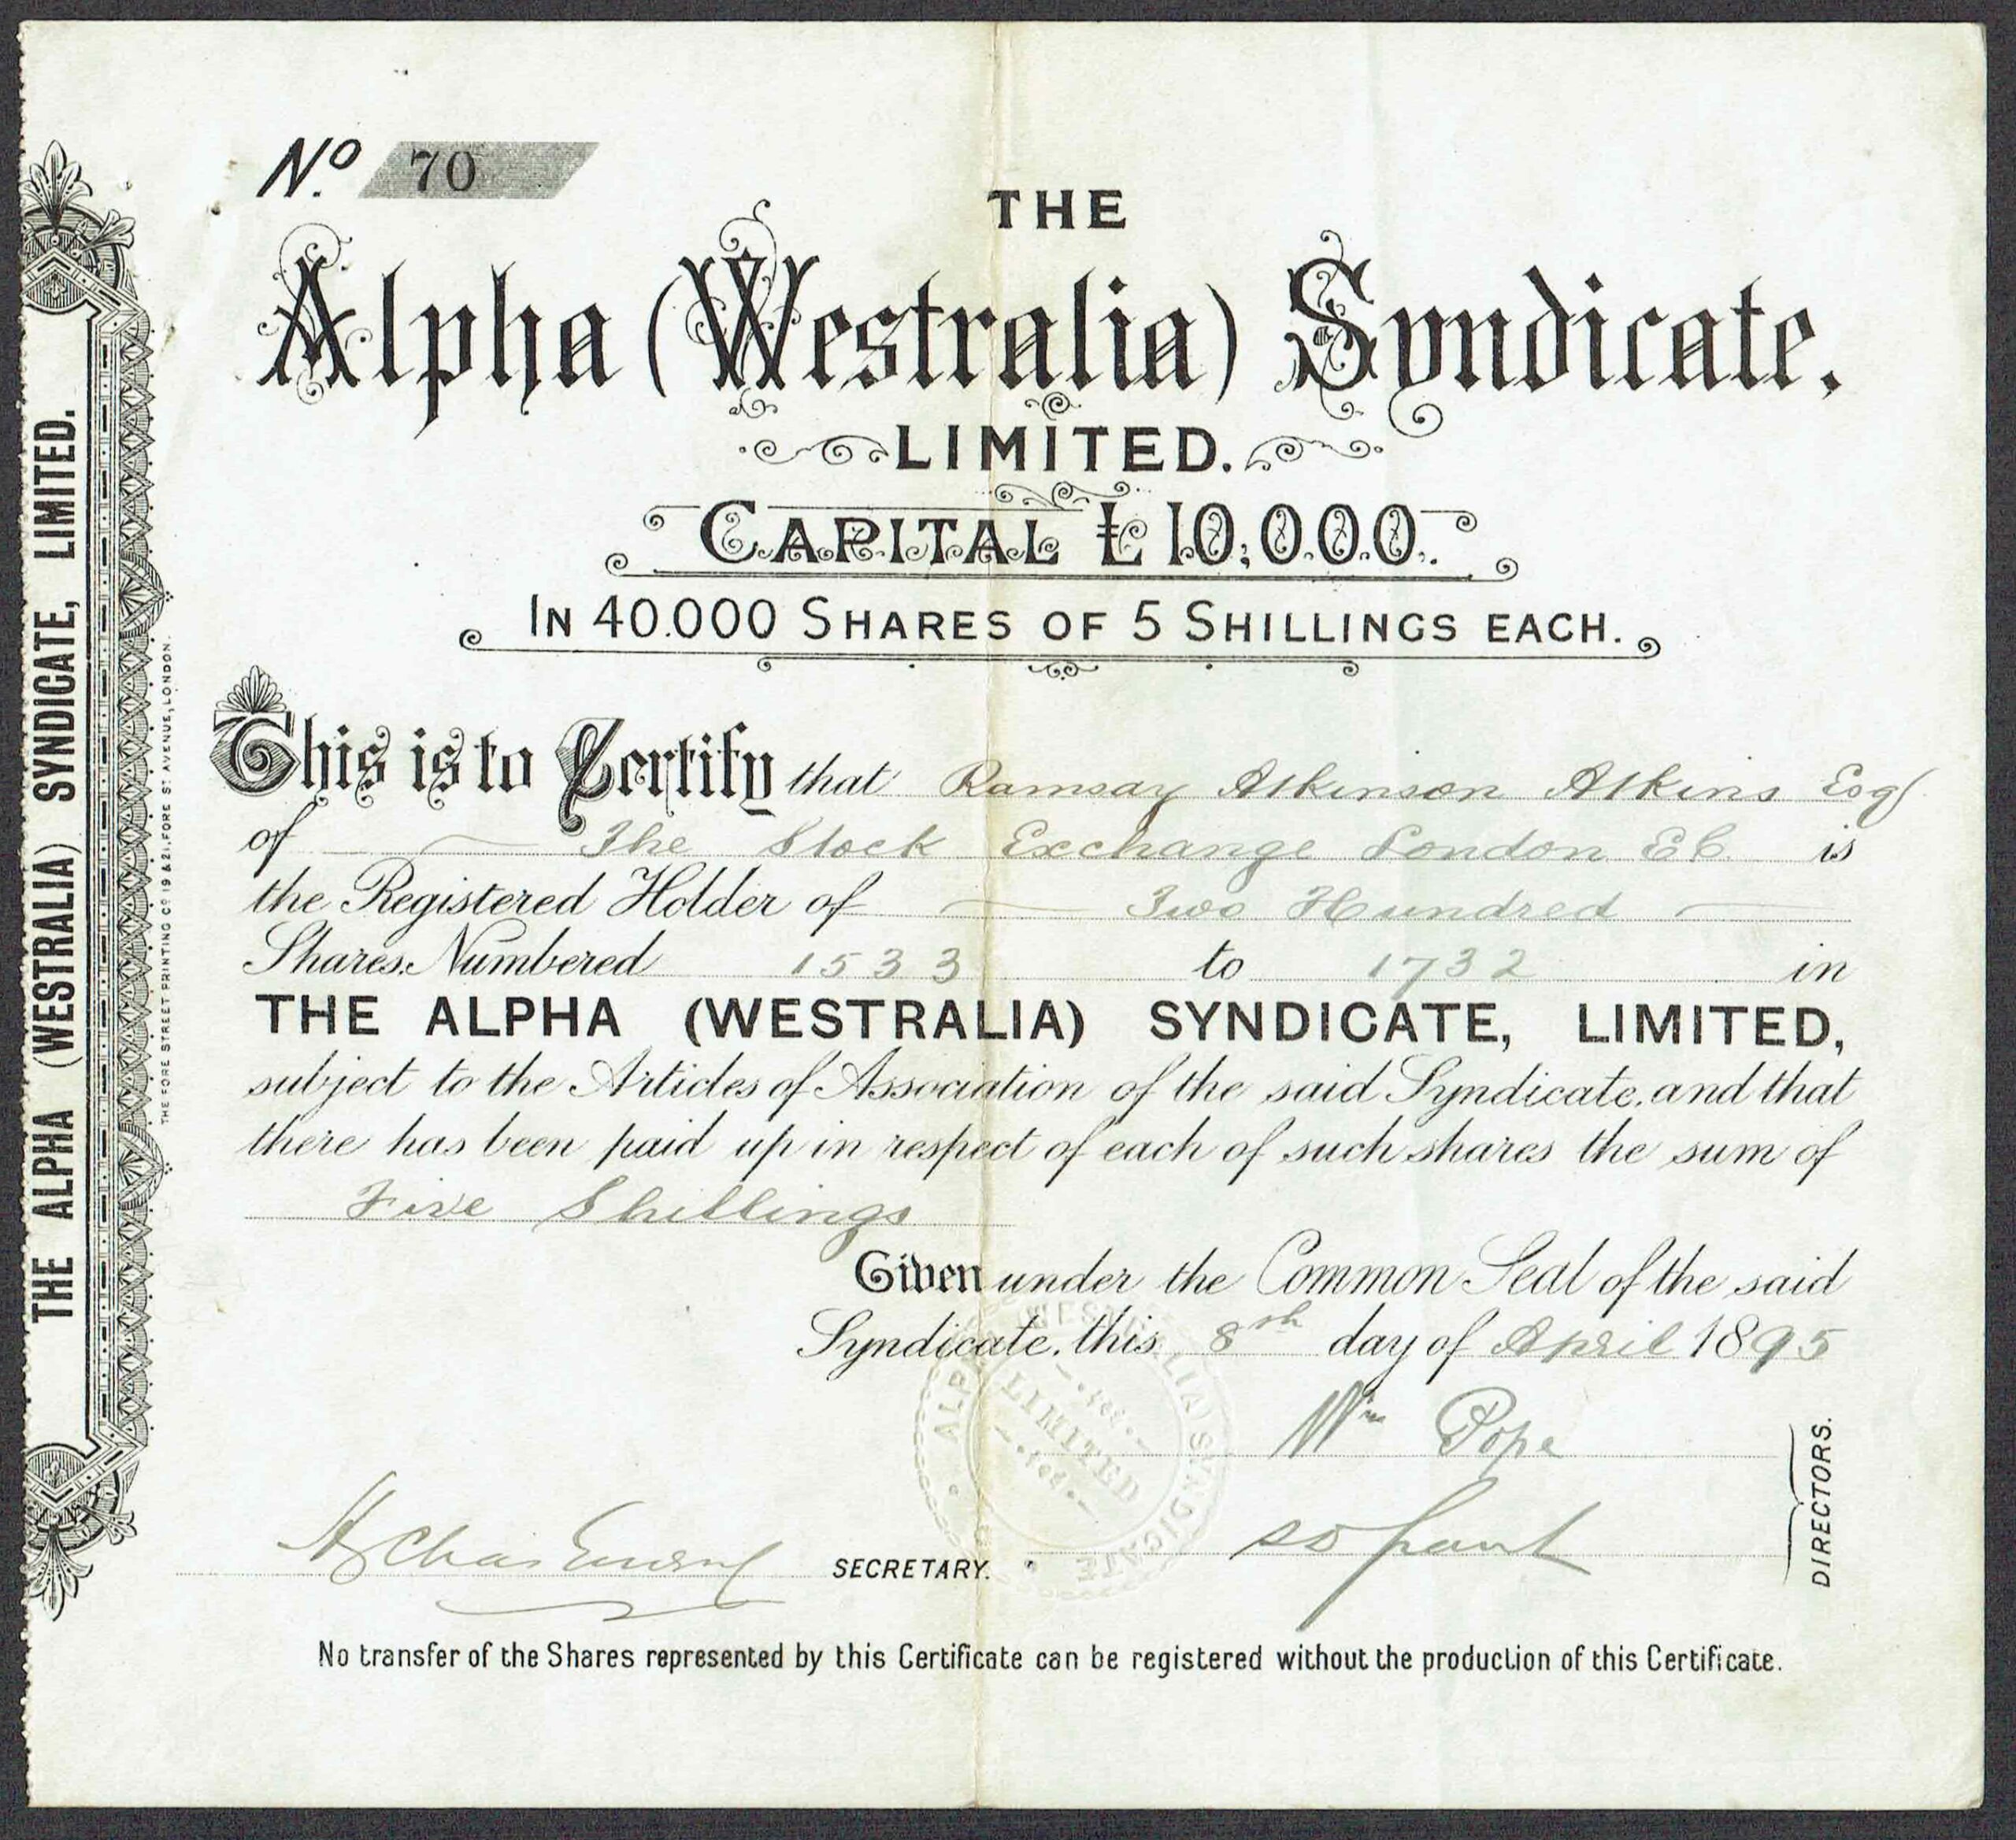 No. 70
THE
Alpha (Westralia) Syndicate,
LIMITED.
CAPITAL £10,000.
IN 40.000 SHARES OF 5 SHILLINGS EACH.
This is to Certify that Ramsay Atkinson Atkins Esq
of The Stock Exchange London EC is
the Registered Holder of Two Hundred
Shares Numbered 1533 to 1732 in
THE ALPHA (WESTRALIA) SYNDICATE, LIMITED,
subject to the Articles of Association of the said Syndicate, and that
there has been paid up in respect of each of such shares the sum of
Five Shillings
Given under the Common Seal of the said
Syndicate, this 8th day of April 1895
Wm Pope
DIRECTORS.
SECRETARY.
ALPHA (WESTRALIA) SYNDICATE
LIMITED
No transfer of the Shares represented by this Certificate can be registered without the production of this Certificate.
THE ALPHA (WESTRALIA) SYNDICATE, LIMITED.
THE FORE STREET PRINTING Co 19 & 21, FORE ST AVENUE, LONDON.